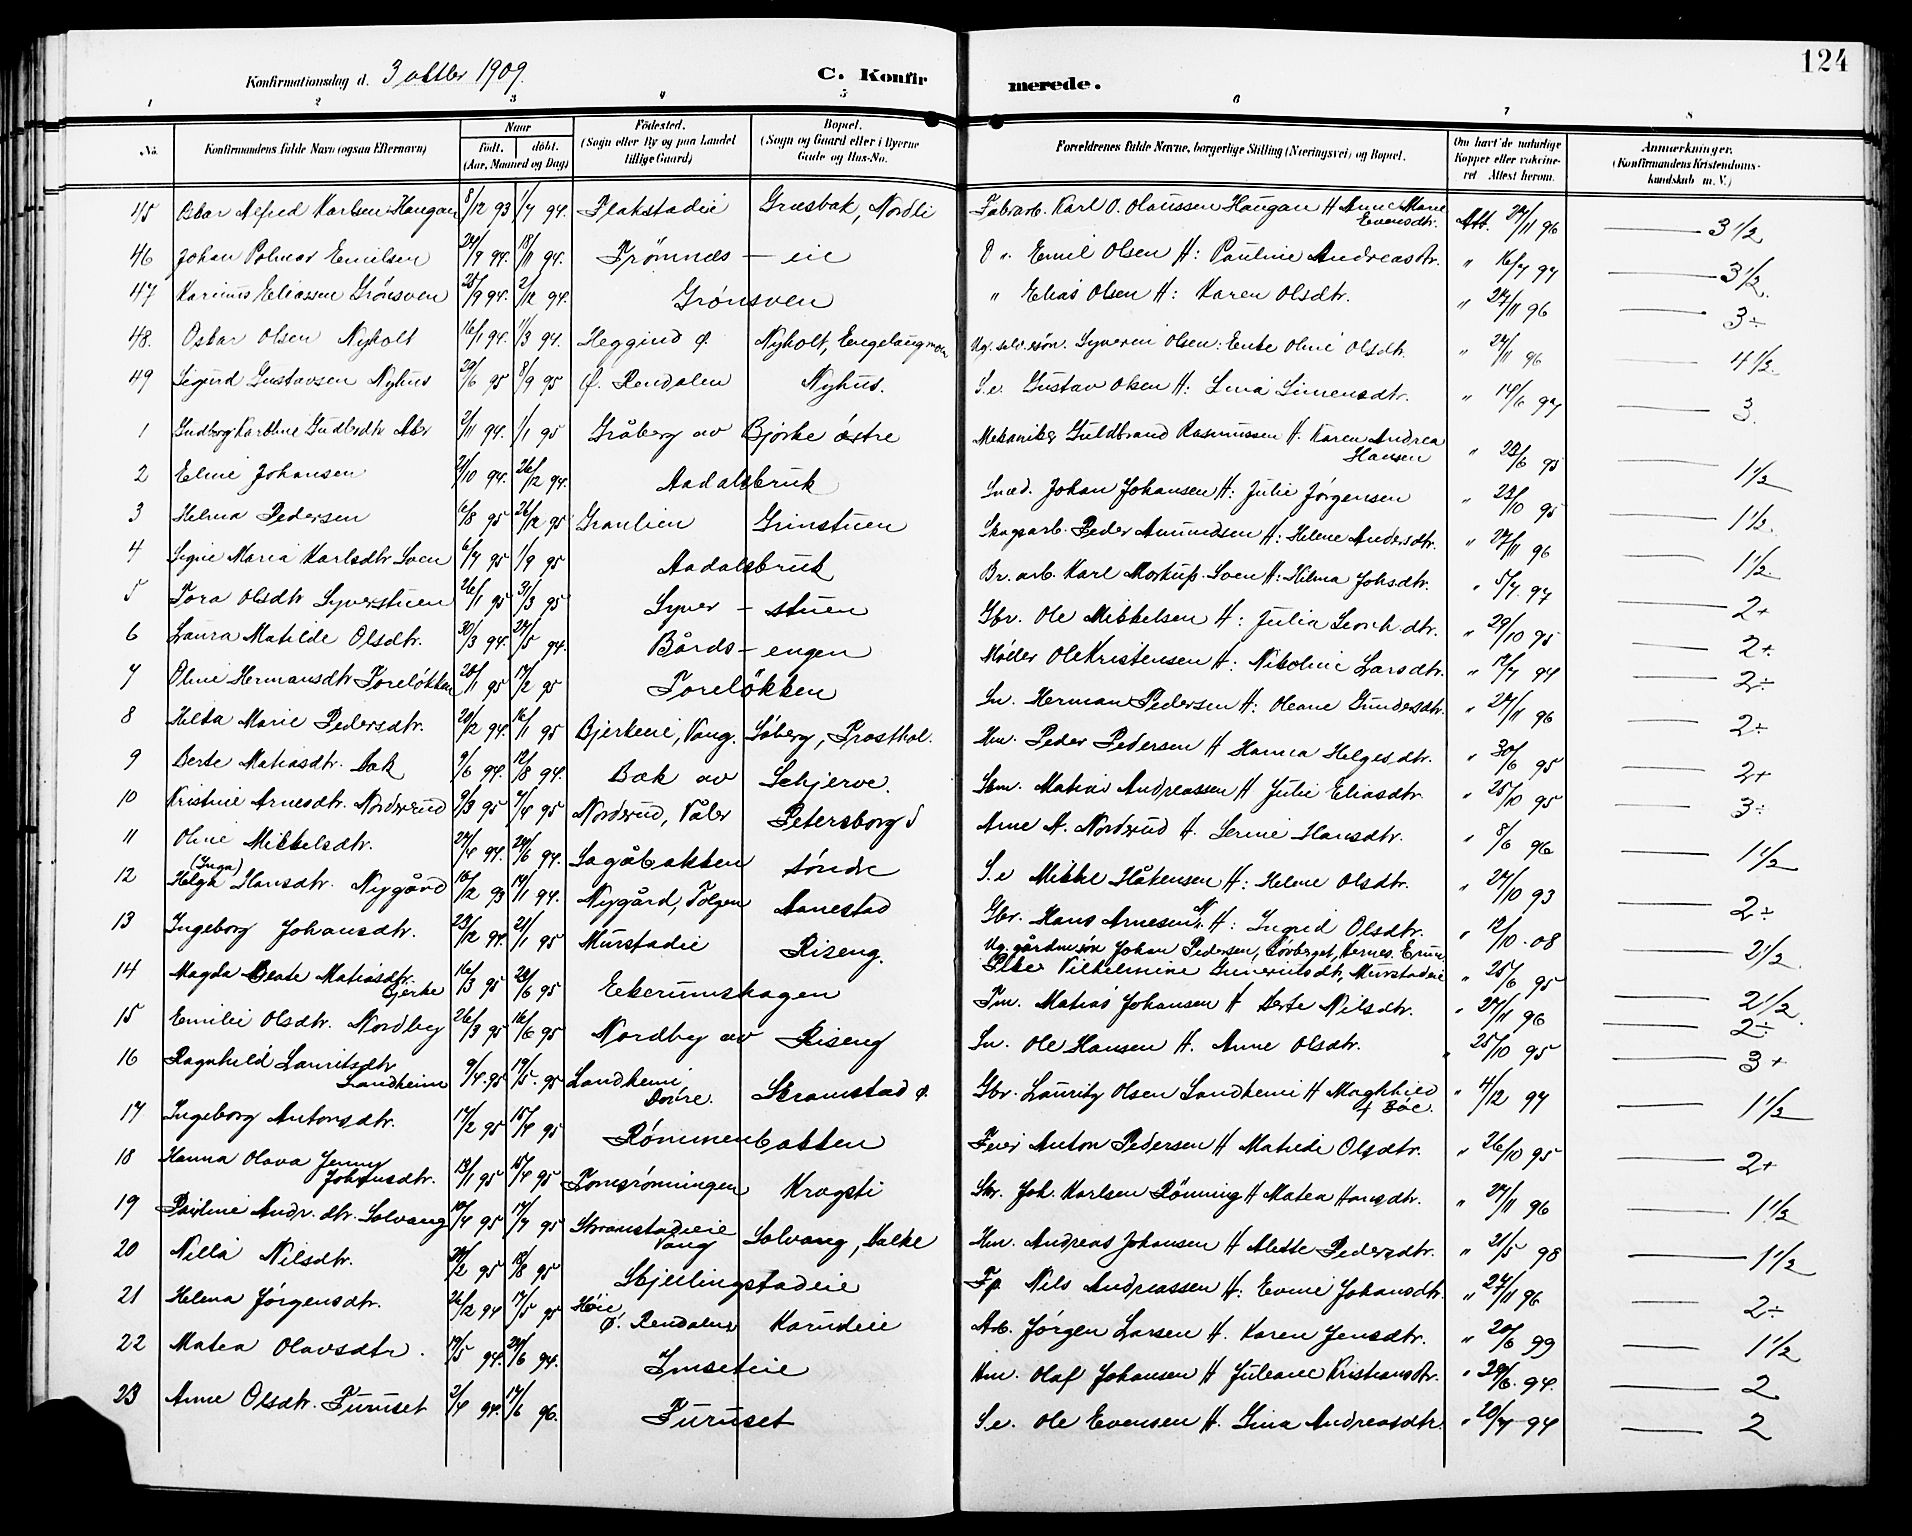 124
Konfirmationsdag d. 3 oktbr 1909. C. Konfirmerede.
1 2 3 4 5 6 7 8
No. Konfirmandens fulde Navn (ogsaa Efternavn) Naar Født. døbt. (Aar, Maaned og Dag) Födested. (Sogn eller By og paa Landet tillige Gaard) Bopæl. (Sogn og Gaard eller i Byerne Gade og Hus-No. Forældrenes fulde Navne, borgerlige Stilling (Næringsvei) og Bopæl. Om havt de naturlige Kopper eller vakcineret Attest herom. Anmærkninger. (Konfirmandens Kristendomskundskab m. V.)
45 Oskar Alfred Karlsen Haugan 8/12 93 1/4 94. Flakstadeie Græsbak, Nordli Fabrarb. Karl O. Olaussen Haugan H Anne Marie Evensdtr. Att. 27/11 96 3 1/2
46 Johan Polmar Emilsen 24/9 94. 18/11 94. Frømnes - eie D". Emil Olsen H: Pauline Andreasdtr. " 16/7 97 3 1/2
47 Karinus Eliassen Grønsven 25/9 94. 2/12 94. Grønsven " Elias Olsen H: Karen Olsdtr. " 27/11 96 3 ÷
48. Oskar Olsen Nyholt 16/1 94. 1/3 94. Heggind ø. Nyholt, Engelaugmoen Ug. selv.søn. Syverin Olsen: Enke Oline Olsdtr. " 27/11 96 4 1/2
49 Sigurd Gustavsen Nyhus 29/6 95 8/9 95 Ø. Rendalen Nyhus. S.e. Gustav Olsen H: Lina Simensdtr. " 14/6 97 3.
1 Gudborg Karoline Gudbrdtr 2/11 94. 1/1 95 Gråberg av Bjørke østre Mekaniker Guldbrand Rasmussen H. Karen Andrea Hansen " 23/6 95 1 1/2
2 Eline Johansen 2/10 94. 26/12 94. Aadalsbruk Smed. Johan Johansen H: Julie Jørgensen " 23/10 95 1 1/2
3 Helma Pedersen 6/8 95 26/12 95 Granlien Grinstuen Skogsarb. Peder Amundsen H: Helene Andersdtr. " 27/11 96 1 1/2
4 Signe Maria Karlsdtr Loen 6/7 95 1/9 95 Aadalsbruk Br. arb. Karl Markus. Loen H: Hilma Johsdtr. " 5/7. 97 2+
5 Tora Olsdtr Syverstuen 26/1 95 31/3 95 Syver - stuen Gbr. Ole Mikkelsen H: Julia dtr. " 29/10 95 2+
6 Laura Matilde Olsdtr. 30/3 94. 27/5 94. Bårds - engen Møller Ole Kristensen H: Nikoline Larsdtr. " 12/7 94 2÷
7 Oline Hermansdtr Foreløkken 20/1 95 17/2 95 Foreløkken Sn. Herman Pedersen H: Oleane Gundersdtr. " 27/11 96 2÷
8 Hilda Marie Pedersdtr. 20/2 94. 16/1 95 Bjerkeeie, Vang. Søberg, Prosthol. Hm. Peder Pedersen H Hanna Helgesdtr. " 30/6 95 2+
9 Berte Matiasdtr. Bæk 9/6 94. 12/8 94. Bæk av Schjerve. Skm. Matias Andreassen H Julie Eliasdtr. " 25/10 95 3÷
10 Kristine Arnesdtr. Norderud 9/3 95 7/4 95 Norderud, Våler Petersborg Arne A. Norderud H. Serine Hansdtr. " 8/6 96 1 1/2
11 Oline Mikkelsdtr. 27/4 94. 24/6 94. Sagåbakken søndre S.e Mikkel Håkensen H: Helene Olsdtr. " 27/10 93 2÷
12 (Inga) Helga Hansdtr. Nygård 10/12 93 14/1 94. Nygård, Tolgen Aanestad Gbr. Hans Arnesen N. H: Ingrid Olsdtr. " 12/10 - 08 2 1/2.
13 Ingeborg Johansdtr. 23/12 94. 21/1 95 Murstadeie Riseng. Ug. gårdmsøn Johan Pedersen, Vilhelmine Gunerildsdtr, Murstadeie " 25/6 95 2 1/2.
14 Magda Beate Matiasdtr Bjerke 16/3 95 23/6 95 Ekerumshagen Fm. Matias Johansen H Berte Nilsdtr. " 27/11 96 2÷
15 Emilie Olsdtr. Nordby 26/3 95 16/6 95 Nordby av Riseng Sn. Ole Hansen H. Anne Olsdtr. " 25/10 95 3+
16 Ragnhild Lauritsdtr Landheim 9/4. 95 19/5. 95 Landheim, Dovre. Skramstad ø. Gbr. Lauritz Olsen Landheim H Maghhild " 4/12 97 1 1/2
17 Ingeborg Antonsdtr. 17/2 95 15/4 95 Rømmenbakken Feier Anton Pedersen H Matilde Olsdtr. " 26/10 95 2+
18 Hanna Olava Jenny Johansdtr. 13/1 95 15/4 95 Tomsrønningen Kragsti Skr. Joh. Karlsen Rønning H Matea Hansdtr. " 27/11 96 1 1/2
19 Pauline Andr. dtr. Solvang 10/4 95 17/7 95 Skramstadeie Vang Solvang, Valke Hm. Andreas Johansen H Alette Pedersdtr. " 21/5 98 1 1/2
20 Nilla Nilsdtr. 20/2 95 18/8 95 Skjellingstadeie Fp. Nils Andreassen H: Evine Johansdtr. " 27/11 96 2÷
21 Helena Jørgensdtr. 26/12 94 17/5 95 Høie, Ø. Rendalen Karudeie Arb. Jørgen Larsen H. Karen Jensdtr. " 20/6 99 1 1/2
22 Matea Olavsdtr. 19/5 94. 24/6 94. Imseteie Hm. Olaf Johansen H Juliane Kristiansdtr. " 28/6. 94. 2
23 Anne Olsdtr. Furuset 2/4 94. 17/6 96. Furuset S.e. Ole Evensen H. Gina Andreasdtr. " 20/7 - 94 2